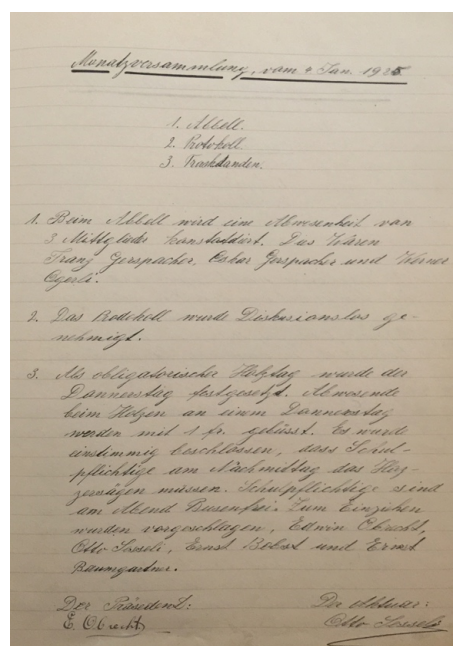 Monatzversammlung, vom 4 Jan. 1925
1. Abbell.
2. Protokoll
3. Tracktanden.
1. Beim Abbell wird eine Abwesenheit von
3. Mittglieder konstadiert. Das Wären
Franz Gerspacher, Oskar Gerspacher und Werner
Ogerli.
2. Das Brodokoll wurde Diskusionslos ge-
nehmigt.
3. Als obligatorischer Holztag wurde der
Dannerstag festgesetzt. Abwesende
beim Holzen an einem Dannerstag
werden mit 1 fr. gebüsst. Es wurde
einstimmig beschlossen, dass Schul-
pflichtige am Nachmittag das Holz
zersägen müssen. Schulpflichtige sind
am Abend Busenfrei. Zum Einziehen
wurden vorgeschlagen, Edwin Obrecht,
Otto, Ernst Bobst und Ernst
Baumgartner.
Der Präsident:
E. Obrecht
Der Aktuar:
Otto